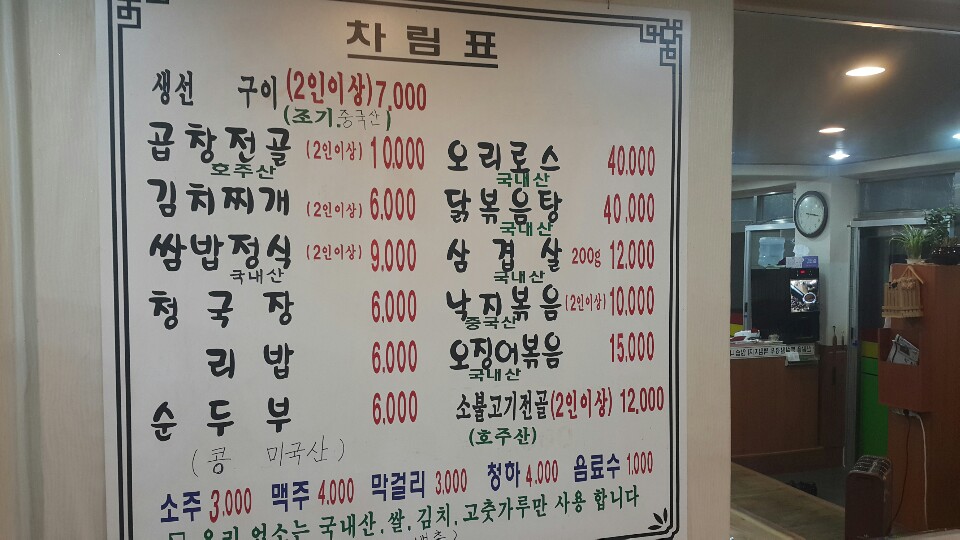 차림표
생선 구이 (2인이상) 7,000
(조기.중국산)
곱창전골 (2인이상) 10.000
호주산
김치찌개 (2인이상) 6.000
쌈밥정식 (2인이상) 9.000
국내산
청국장 6.000
리밥 6.000
순두부 6.000
(콩 미국산)
오리로스 40.000
국내산
닭볶음탕 40.000
국내산
삼겹살 200g 12.000
국내산
낙지볶음 (2인이상) 10,000
중국산
오징어볶음 15.000
국내산
소불고기전골 (2인이상) 12,000
(호주산)
소주 3.000 맥주 4.000 막걸리 3.000 청하 4.000 음료수 1.000
우리 업소는 국내산, 쌀, 김치, 고춧가루만 사용 합니다